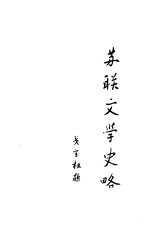 苏联文学史略
戈宝权题